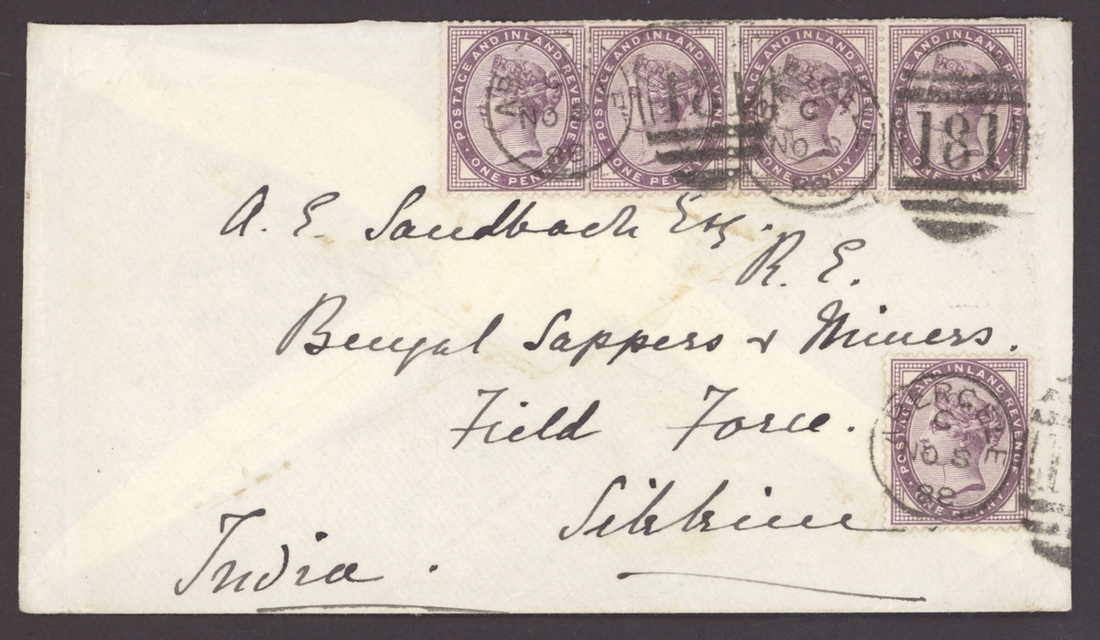 POSTAGE AND INLAND REVENUE POSTAGE AND INLAND REVENUE POSTAGE AND INLAND REVENUE POSTAGE AND INLAND REVENUE
NO
88
C
NO 8
88
181
ONE PENNY ONE PENNY ONE PENNY ONE PENNY
A. E. Sandbach Esq.
R. E.
Bengal Sappers & Miners.
Field Force.
Sikkim
India.
POSTAGE AND INLAND REVENUE
ABERGELE
C
NO 8
88
ONE PENNY